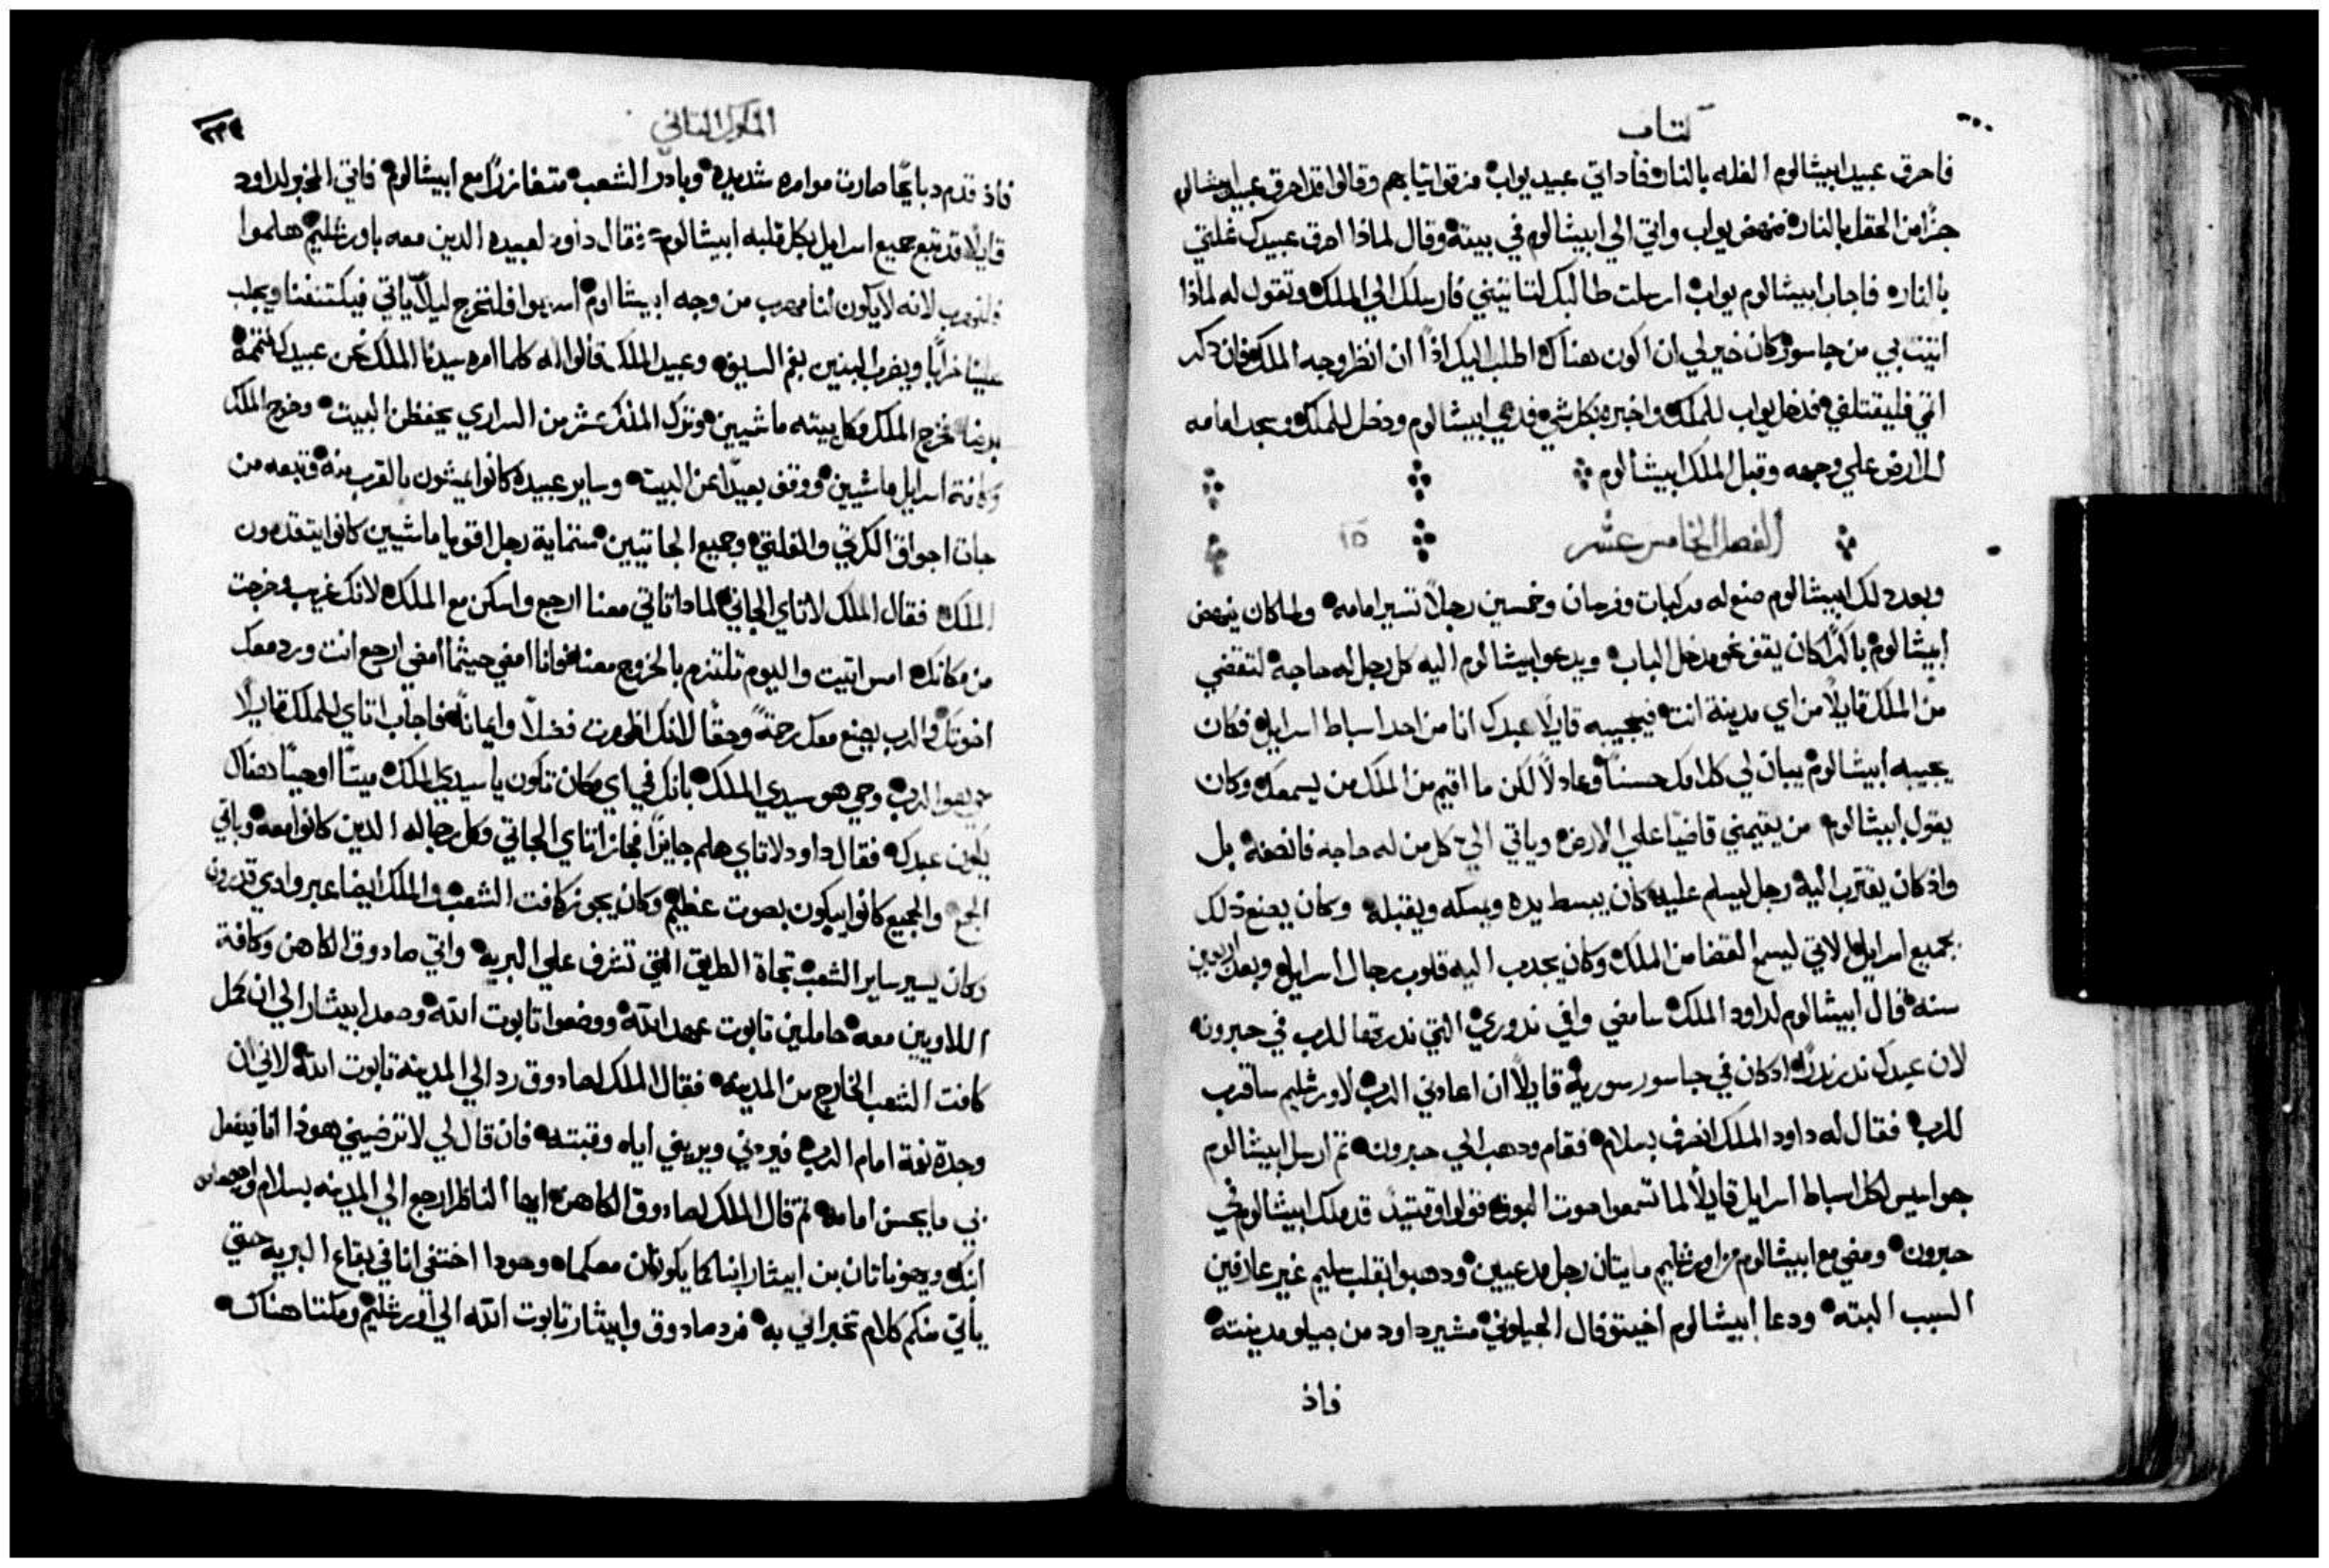 كتاب
فاحرق عبيد ابيشالوم الغله بالنار فاذ اتي عبيد يواب مزقوا ثيابهم وقالوا قد احرق عبيد ابيشالوم
جزًا من الحقل بالنار فنهض يواب واتي الي ابيشالوم في بيته وقال لماذا احرق عبيدك غلتي
بالنار فاجاب ابيشالوم يواب ارسلت طالبك لتاتيني فارسلك الي الملك وتقول له لماذا
اتيت بي من جاسور كان خير لي ان اكون هناك اطلب اليك اذًا ان انظر وجه الملك فان ذكر
اثمي فليقتلني فدخل يواب للملك واخبره بكل شي فدعي ابيشالوم ودخل للملك وسجد امامه
للارض علي وجهه وقبل الملك ابيشالوم
الفصل الخامس عشر ١٥
وبعد دلك ابيشالوم صنع له مركبات وفرسان وخمسين رجلاً تسير امامه ولما كان ينهض
ابيشالوم باكرًا كان يقف نحو مدخل الباب ويدعو ابيشالوم اليه كل رجل له حاجه لتقضي
من الملك قايلاً من اي مدينة انت فيجيبه قايلاً عبدك انا من احد اسباط اسرايل فكان
يجيبه ابيشالوم يبان لي كلامك حسنًا وعادلاً لكن ما اقيم من الملك من يسمعك وكان
يقول ابيشالوم من يقيمني قاضيًا علي الارض وياتي الي كل من له حاجه فانصفه بل
واذ كان يقترب اليه رجل ليسلم عليه كان يبسط يده ويمسكه ويقبله وكان يصنع ذلك
بجميع اسرايل الاتي ليسمع القضا من الملك وكان يجدب اليه قلوب رجال اسرايل وبعد اربعين
سنه قال ابيشالوم لداود الملك سامضي واوفي ندوري التي ندرتها للرب في حبرون
لان عبدك ندر ندرًا اد كان في جاسور سوريه قايلاً ان اعادني الرب لاورشليم ساقرب
للرب فقال له داود الملك انصرف بسلام فقام ودهب الي حبرون ثم ارسل ابيشالوم
جواسيس لكل اسباط اسرايل قايلاً لما تسمعوا صوت البوق فقولوا وقتيدٍ قد ملك ابيشالوم في
حبرون ومضي مع ابيشالوم من اورشليم مايتان رجل مدعيين ودهبوا بقلب سليم غير عارفين
السبب البته ودعا ابيشالوم اخيتوفال الجيلوني مشير داود من جيلو مدينته
فاذ
الملوك الثاني
فاذ قدم دبايحًا صارت موامره شديده وبادر الشعب متغازرًا مع ابيشالوم فاتي المخبر لداود
قايلاً قد تبع جميع اسرايل بكل قلبه ابيشالوم فقال داود لعبيده الدين معه باورشليم هلموا
فلنهرب لانه لا يكون لنا مهرب من وجه ابيشالوم اسرعوا فلنخرج ليلاّ ياتي فيكتنفنا ويجلب
علينا خرابًا ويضرب المدينه بفم السيف وعبيد الملك قالوا له كلما امره سيدنا الملك نحن عبيدك نتممه
فخرج الملك وكل بيته ماشيين وترك الملك عشر من السراري يحفظن البيت وخرج الملك
وكافة اسرايل ماشيين ووقف بعيدًا عن البيت وساير عبيده كانوا يمشون بالقرب منه وتبعه من
جات اجواق الكرتي والفلتي وجميع الجاتيين ستماية رجل اقويا ماشيين كانوا يتقدمون
الملك فقال الملك لاتاي الجاتي لمادا تاتي معنا ارجع واسكن مع الملك لانك غريب وخرجت
من مكانك امس اتيت واليوم تلتزم بالخروج معنا فانا امضي حيثما امضي ارجع انت ورد معك
اخوتك والرب يصنع معك رحمةً وحقًا لانك اظهرت فضلاً وايمانًا فاجاب اتاي للملك قايلاً
حي هو الرب وحي هو سيدي الملك بانك في اي مكان تكون يا سيدي الملك ميتًا او حيًا هناك
يكون عبدك فقال داود لاتاي هلم جايزًا فجاز اتاي الجاتي وكل رجاله الدين كانوا معه وباقي
الجمع والجميع كانوا يبكون بصوت عظيم وكان يجوز كافت الشعب والملك ايضا عبر وادي قدرون
وكان يسير ساير الشعب تجاة الطريق التي تشرف علي البريه واتي صادوق الكاهن وكافة
اللاويين معه حاملين تابوت عهد الله ووضعوا تابوت الله وصعد ابيثار الي ان كمل
كافت الشعب الخارج من المدينه فقال الملك لصادوق رد الي المدينه تابوت الله لاني ان
وجدة نعمة امام الرب فيردني ويريني اياه وقبته فان قال لي لا ترضيني هوذا انا فيفعل
بي ما يحسن امامه ثم قال الملك لصادوق الكاهن ايها الناظر ارجع الي المدينه بسلام
ابنك ويوناثان بن ابيثار ابناكما يكونان معكما وهودا اختفي انا في بقاع البريه حتي
يأتي منكم كلام تخبراني به فرد صادوق وابيثار تابوت الله الي اورشليم ومكثا هناك